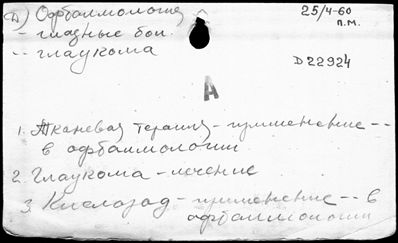 Д) Офтальмология 25/4-60
п.м.
- глазные бол.
-- глаукома
D 22924
A
1. Тканевая терапия - применение --
в офтальмологии
2. Глаукома - лечение
3. Кислород - применение -- в
офтальмологии